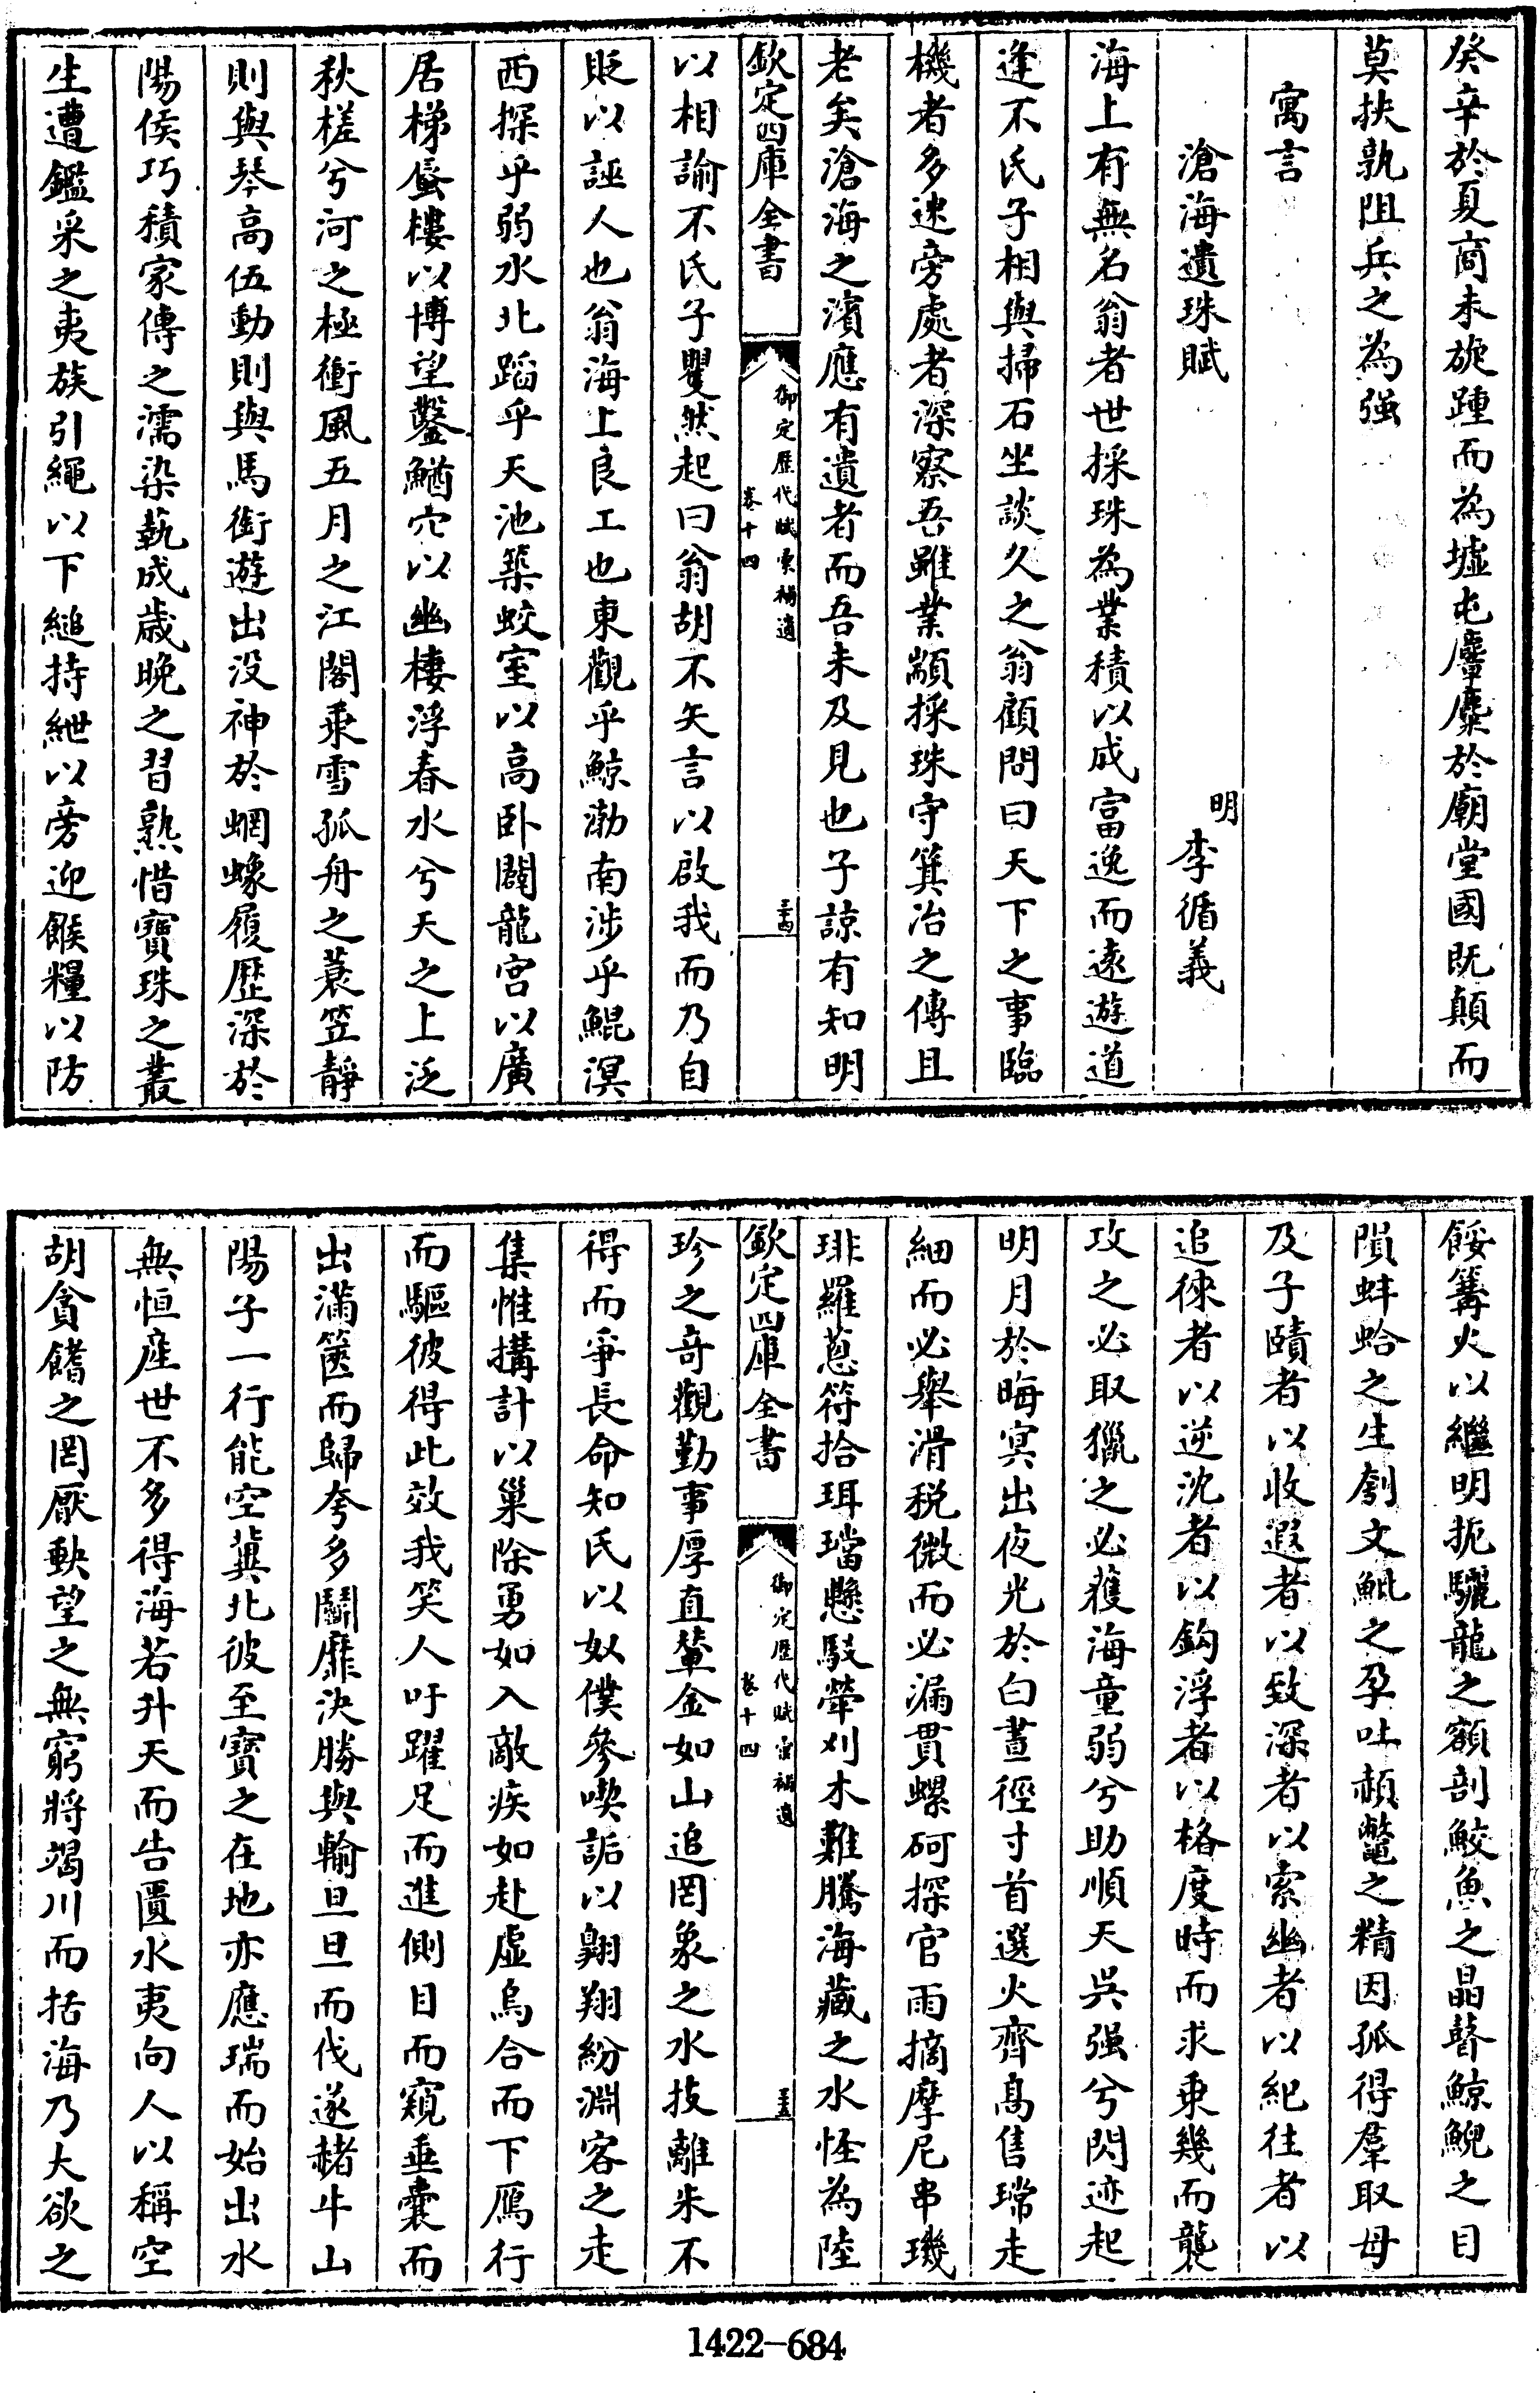 癸辛於夏商未旋踵而為墟屯麞麋於廟堂國既顛而
莫扶孰阻兵之為强
寓言
滄海遺珠賦
明李循義
海上有無名翁者世採珠為業積以成富逸而遠遊道
逢不氏子相與掃石坐談久之翁顧問曰天下之事臨
機者多迷旁處者深察吾雖業顓採珠守箕冶之傳且
老矣滄海之濱應有遺者而吾未及見也子諒有知明
欽定四庫全書
御定歷代賦彙補遺
卷十四
三十四
以相諭不氏子矍然起曰翁胡不矢言以啟我而乃自
貶以誣人也翁海上良工也東觀乎鯨渤南涉乎鯤溟
西探乎弱水北蹈乎天池築蛟室以高卧闢龍宮以廣
居梯蜃樓以博望鑿鰌穴以幽棲浮春水兮天之上泛
秋槎兮河之極衝風五月之江閣乘雪孤舟之蓑笠靜
則與琴高伍動則與馬銜遊出沒神於蝄蟓履歷深於
陽侯巧積家傳之濡染執成歲晚之習熟惜寶珠之叢
生遭鑑采之夷族引繩以下縋持紲以旁迎餱糧以防
餒篝火以繼明扼驪龍之額剖鮫魚之晶瞽鯨鯢之目
隕蚌蛤之生刳文魮之孕吐赬鼈之精因孤得羣取母
及子賾者以收遐者以致深者以索幽者以紀往者以
追徠者以逆沈者以鈎浮者以格度時而求乘幾而襲
攻之必取獵之必獲海童弱兮助順天吳强兮閃迹起
明月於晦冥出夜光於白晝徑寸首選火齊高售璫走
細而必舉滑税微而必漏貫螺砢探官雨摘摩尼串璣
琲羅蒠符拾珥璫懸駮犖刈木難騰海藏之水怪為陸
欽定四庫全書
御定歷代賦彙補遺
卷十四
三十五
珍之奇觀勤事厚直輦金如山追罔象之水技離朱不
得而爭長命知氏以奴僕參喫詬以翺翔紛淵客之走
集惟搆計以巢除勇如入敵疾如赴虛烏合而下鴈行
而驅彼得此效我笑人吁躍足而進側目而窺垂囊而
出滿篋而歸夸多鬭靡決勝與輸旦旦而伐遂赭牛山
陽子一行能空冀北彼至寶之在地亦應瑞而始出水
無恒産世不多得海若升天而告匱水夷向人以稱空
胡貪饝之罔厭軼望之無窮將竭川而括海乃大欲之
1422-684